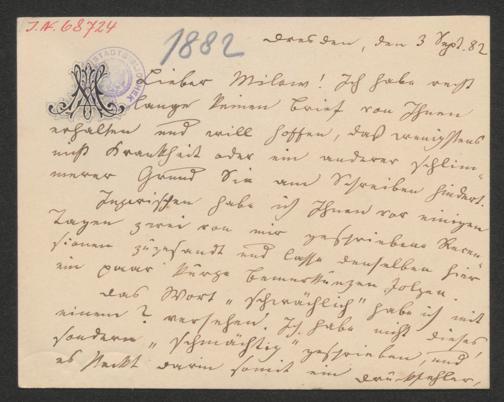 J.N. 68724
1882
Dresden, den 3 Sept. 82
Lieber Milow! Ich habe recht
lange keinen Brief von Ihnen
erhalten und will hoffen, daß wenigstens
nicht Krankheit oder ein anderer schlim-
merer Grund Sie am Schreiben hindert.
Inzwischen habe ich Ihnen vor einigen
Tagen zwei von mir geschriebene Recen-
sionen zugesandt und lasse denselben hier
ein paar kurze Bemerkungen folgen.
Das Wort „schwächlich" habe ich mit
einem ? versehen. Ich habe nicht dieses
sondern „schmächtig" geschrieben, und
es steckt darin somit ein Druckfehler,